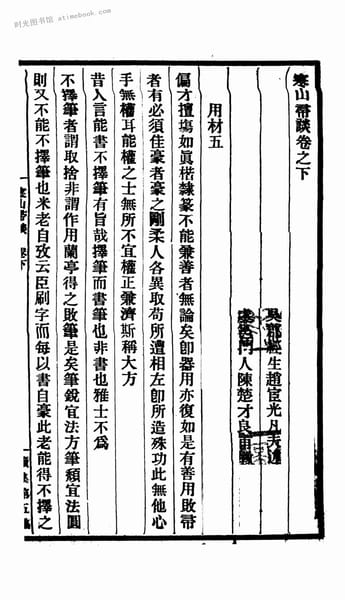 时光图书馆 atimebook.com
寒山帚談卷之下
吳郡經生趙宧光凡夫述
門人陳楚才良
用材五
偏才擅塲如眞楷隸篆不能兼善者無論矣卽器用亦復如是有善用敗帚
者有必須佳豪者豪之剛柔人各異取茍所遭相左卽所造殊功此無他心
手無權耳能權之士無所不宜權正兼濟斯稱大方
昔人言能書不擇筆有旨哉擇筆而書筆也非書也雅士不爲
不擇筆者謂取捨非謂作用蘭亭得之敗筆是矣筆銳宜法方筆頹宜法圓
則又不能不擇筆也米老自攷云臣刷字而每以書自豪此老能得不擇之
寒山帚談 卷下
集第五